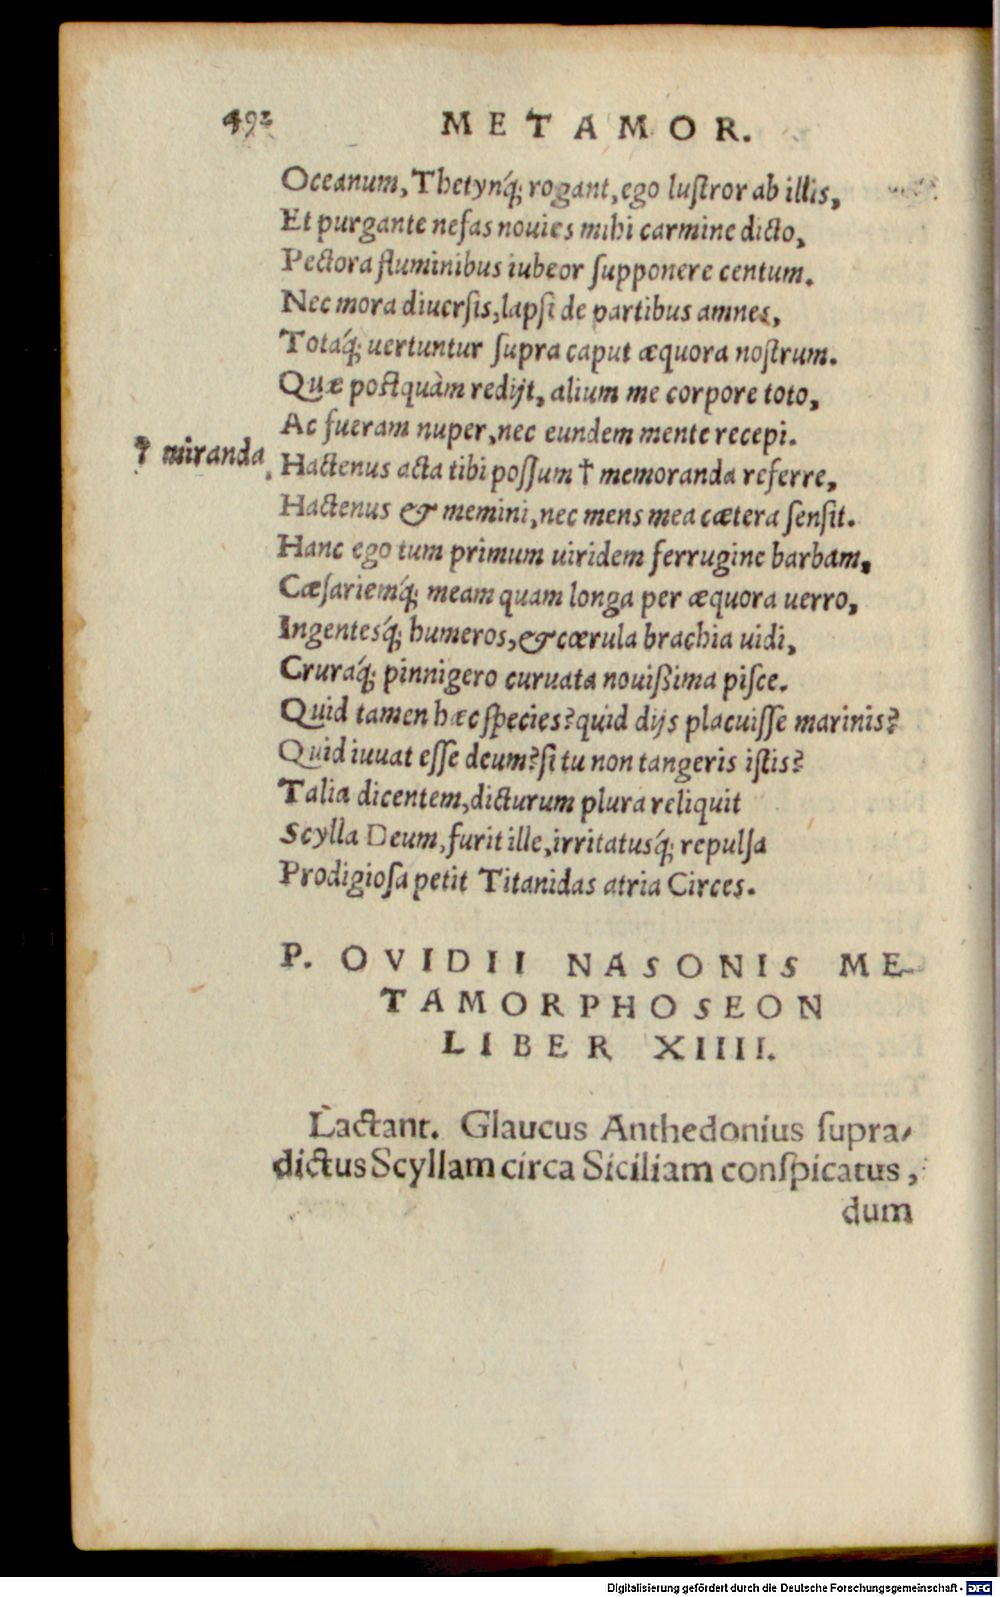 492 METAMOR.
Oceanum, Thetynq́; rogant, ego luſtror ab illis,
Et purgante nefas nouies mihi carmine dicto,
Pectora fluminibus iubeor ſupponere centum.
Nec mora diuerſis, lapſi de partibus amnes,
Totaq́; uertuntur ſupra caput æquora noſtrum.
Quæ poſtquàm redijt, alium me corpore toto,
Ac fueram nuper, nec eundem mente recepi.
† miranda.
Hactenus acta tibi poſſum † memoranda referre,
Hactenus & memini, nec mens mea cætera ſenſit.
Hanc ego tum primum uiridem ferrugine barbam,
Cæſariemq́; meam quam longa per æquora uerro,
Ingentesq́; humeros, & cœrula brachia uidi,
Cruraq́; pinnigero curuata nouiſsima piſce.
Quid tamen hæc ſpecies? quid dijs placuiſſe marinis?
Quid iuuat eſſe deum? ſi tu non tangeris iſtis?
Talia dicentem, dicturum plura reliquit
Scylla Deum, furit ille, irritatusq́; repulſa
Prodigioſa petit Titanidas atria Circes.
P. OVIDII NASONIS ME-
TAMORPHOSEON
LIBER XIIII.
Lactant. Glaucus Anthedonius ſupra-
dictus Scyllam circa Siciliam conſpicatus,
dum
Digitalisierung gefördert durch die Deutsche Forschungsgemeinschaft - DFG